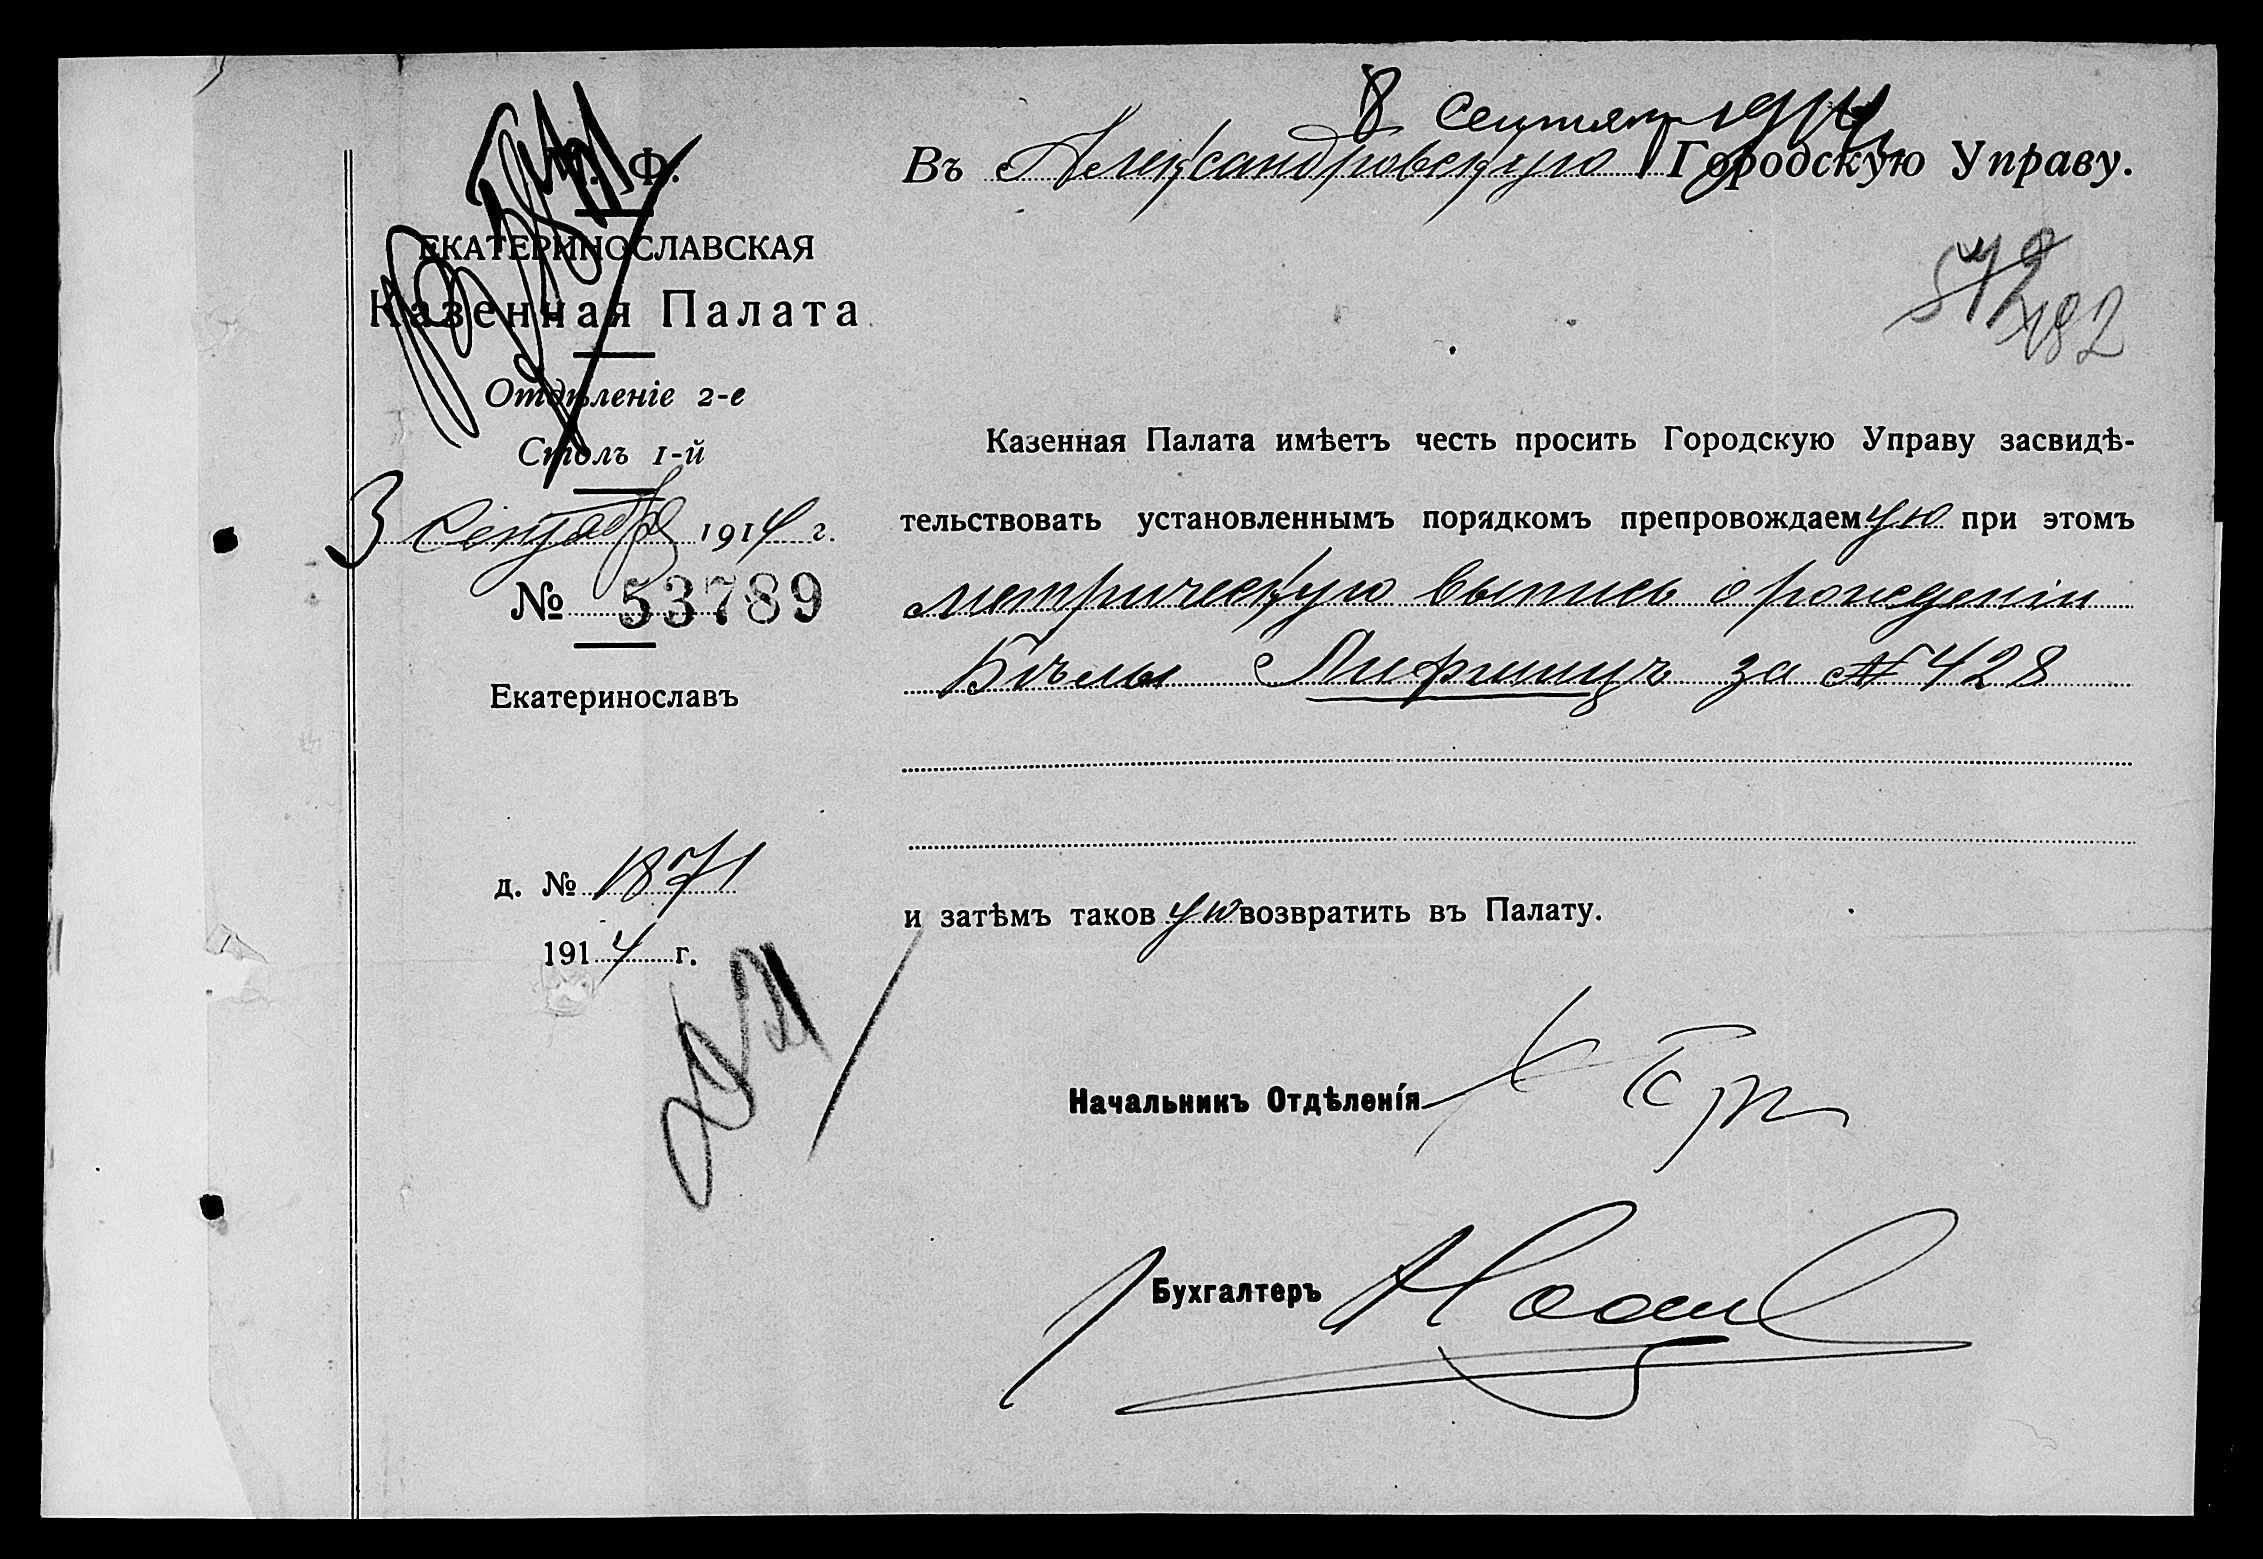 Ф.
ЕКАТЕРИНОСЛАВСКАЯ
Казенная Палата
Отдѣленіе 2-е
Столъ 1-й
3 Сентября 1914 г.
№ 53789
Екатеринославъ
д. № 1871
1914 г.
8 Сентяб 1914
Въ Александровскую Городскую Управу.
572
482
Казенная Палата имѣетъ честь просить Городскую Управу засвидѣ-
тельствовать установленнымъ порядкомъ препровождаемую при этомъ
метрическую выпись о рожденіи
Бѣлы Лифшицъ за № 428
и затѣмъ такову ю возвратить въ Палату.
Начальникъ Отдѣленія
Бухгалтеръ